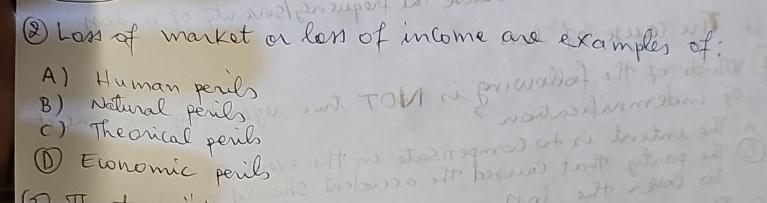 ② Loss of market or loss of income are examples of:
A) Human perils
B) Natural perils
C) Theorical perils
Ⓓ Economic perils